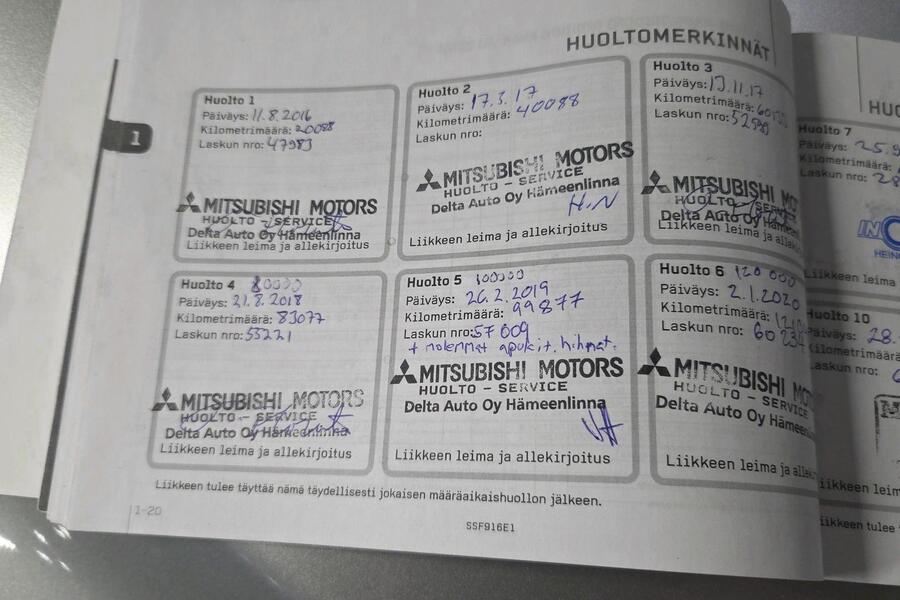 HUOLTOMERKINNÄT
Huolto 1
Päiväys: 11.8.2016
Kilometrimäärä: 20088
Laskun nro: 47983
MITSUBISHI MOTORS
HUOLTO - SERVICE
Delta Auto Oy Hämeenlinna
Liikkeen leima ja allekirjoitus
Huolto 2
Päiväys: 17.3.17
Kilometrimäärä: 40088
Laskun nro:
MITSUBISHI MOTORS
HUOLTO - SERVICE
Delta Auto Oy Hämeenlinna
H.N
Liikkeen leima ja allekirjoitus
Huolto 3
Päiväys: 13.11.17
Kilometrimäärä:
Laskun nro:
MITSUBISHI MO
HUOLTO - SERVICE
Delta Auto Oy Hämeen
Liikkeen leima ja alle
Huolto 4 80000
Päiväys: 21.8.2018
Kilometrimäärä: 83077
Laskun nro: 53221
MITSUBISHI MOTORS
HUOLTO - SERVICE
Delta Auto Oy Hämeenlinna
Liikkeen leima ja allekirjoitus
Huolto 5 100000
Päiväys: 26.2.2019
Kilometrimäärä: 99877
Laskun nro: 57009
+ molemmat apulait. hihnat.
MITSUBISHI MOTORS
HUOLTO - SERVICE
Delta Auto Oy Hämeenlinna
Liikkeen leima ja allekirjoitus
Huolto 6 120 000
Päiväys: 2.1.2020
Kilometrimäärä:
Laskun nro: 60234
MITSUBISHI MO
HUOLTO - SERVICE
Delta Auto Oy Hämeenlinn
Liikkeen leima ja allekirj
Liikkeen tulee täyttää nämä täydellisesti jokaisen määräaikaishuollon jälkeen.
1-20
SSF916E1
1
HUO
Huolto 7
Päiväys: 25.9
Kilometrimäärä:
Laskun nro: 28
HEIN
Liikkeen leima
Huolto 10
Päiväys: 28.
Kilometrimäärä
Laskun nro:
Liikkeen leim
Liikkeen tulee